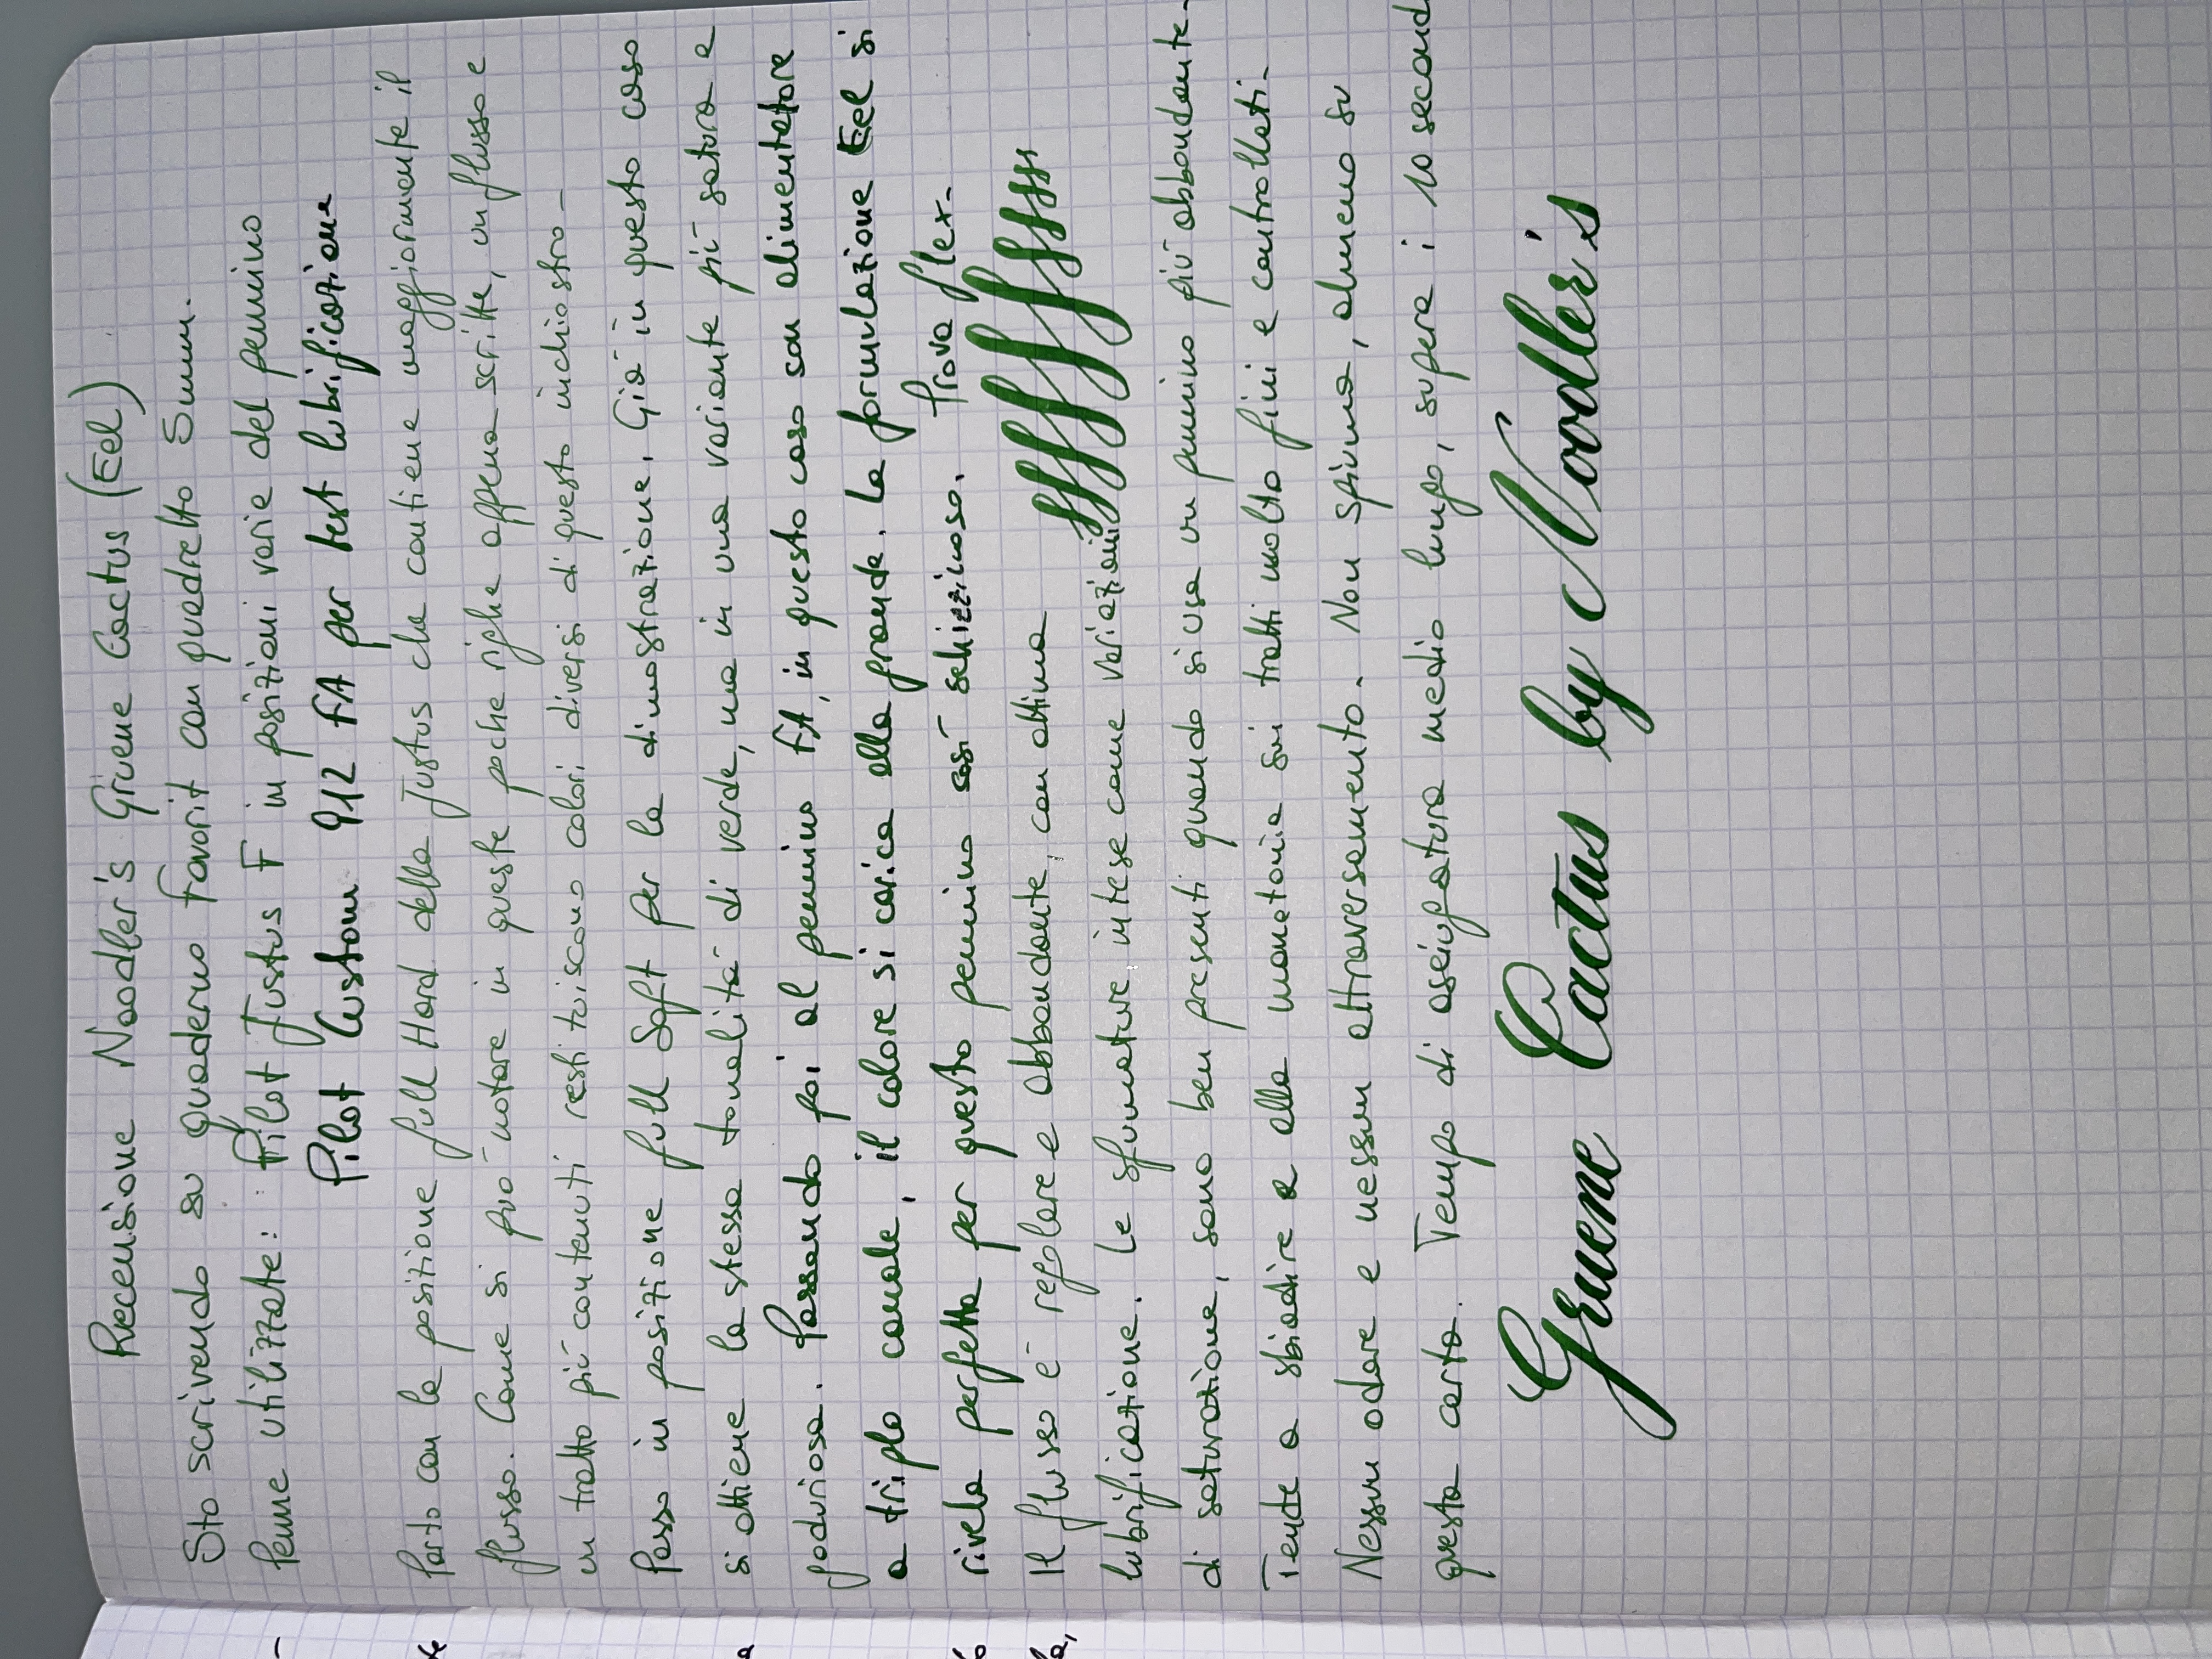 Recensione Noodler's Gruene Cactus (Eel)
Sto scrivendo su quaderno Favorit con quadretto 5mm.
Penne utilizzate: Pilot Justus F in posizioni varie del pennino
Pilot Custom 912 FA per test lubrificazione
Parto con la posizione full Hard della Justus che contiene maggiormente il
flusso. Come si può notare in queste poche righe appena scritte, un flusso e
un tratto più contenuti restituiscono colori diversi di questo inchiostro-
Passo in posizione full Soft per la dimostrazione. Già in questo caso
si ottiene la stessa tonalità di verde, ma in una variante più satura e
goduriosa. Passando poi al pennino FA, in questo caso son alimentatore
a triplo canale, il colore si carica alla grande. La formulazione Eel si
rivela perfetta per questo pennino così schizzinoso. Prova flex-
Il flusso è regolare e abbondante, con ottima
lubrificazione. Le sfumature, intese come variazioni
di saturazione, sono ben presenti quando si usa un pennino più abbondante-
Tende a sbiadire e alla monotonia sui tratti molto fini e controllati-
Nessun odore e nessun attraversamento. Non spiuma, almeno su
questa carta. Tempo di asciugatura medio lungo, supera i 10 second
Gruene Cactus by Noodler's